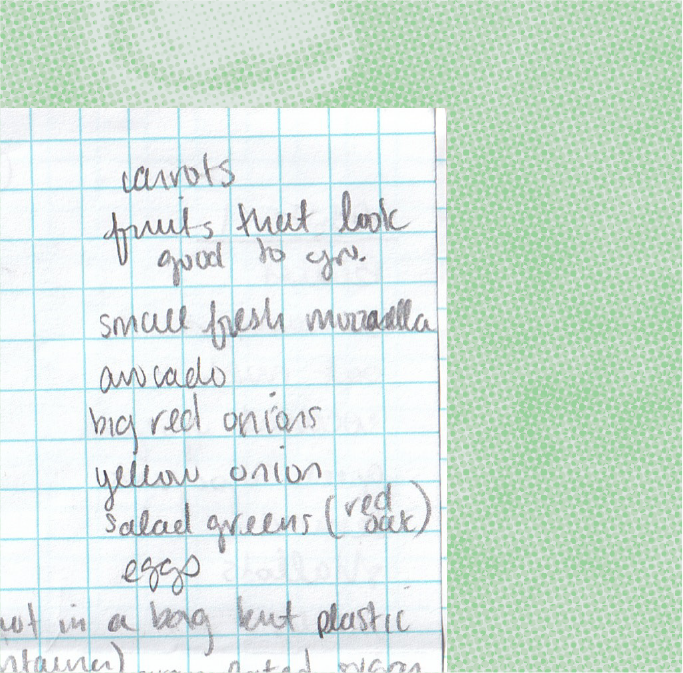 carrots
fruits that look
good to you.
small fresh mozzarella
avocado
big red onions
yellow onion
salad greens (red
oak)
eggs
in a bag but plastic